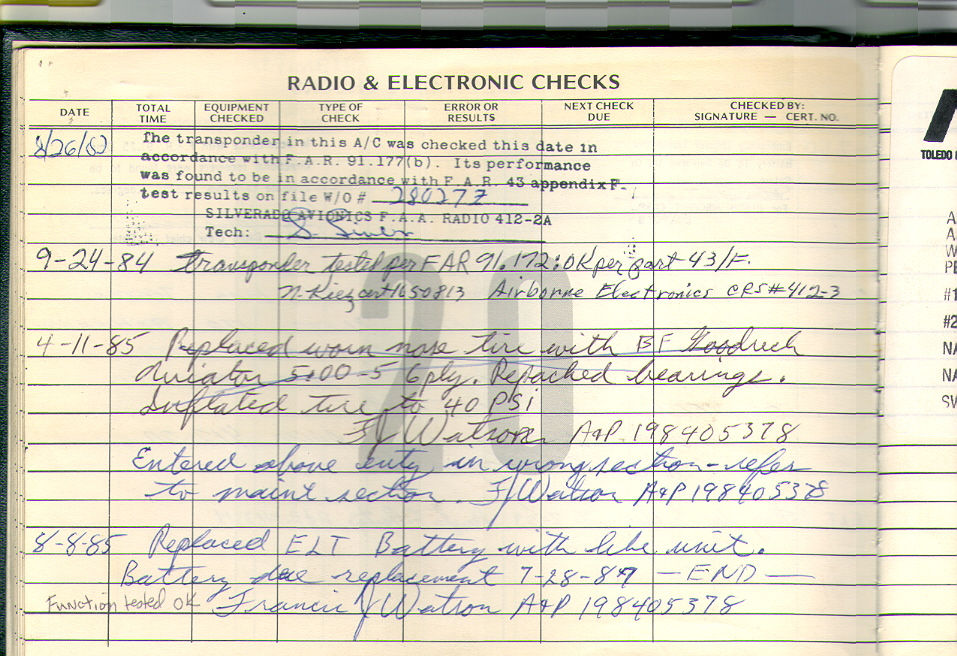 RADIO & ELECTRONIC CHECKS
DATE TOTAL TIME EQUIPMENT CHECKED TYPE OF CHECK ERROR OR RESULTS NEXT CHECK DUE CHECKED BY: SIGNATURE — CERT. NO.
The transponder in this A/C was checked this date in
accordance with F.A.R. 91.177(b). Its performance
was found to be in accordance with F.A.R. 43 appendix F-
test results on file W/O # 280277
SILVERADO AVIONICS F.A.A. RADIO 412-2A
Tech:
9-24-84 Transponder tested per FAR 91.172: OK per part 43/F.
cert 1650813 Airborne Electronics CRS#412-3
4-11-85 Replaced worn nose tire with BF Goodrich
Aviator 5:00-5 6 ply. Repacked bearings.
Inflated tire to 40 PSI
FJ Watson A&P 198405378
Entered above entry in wrong section - refer
to maint section. FJ Watson A&P 198405378
8-8-85 Replaced ELT Battery with like unit.
Battery due replacement 7-28-87 — END —
Function tested OK Francis J Watson A&P 198405378
20
TOLEDO
#1
#2
NA
NA
SW